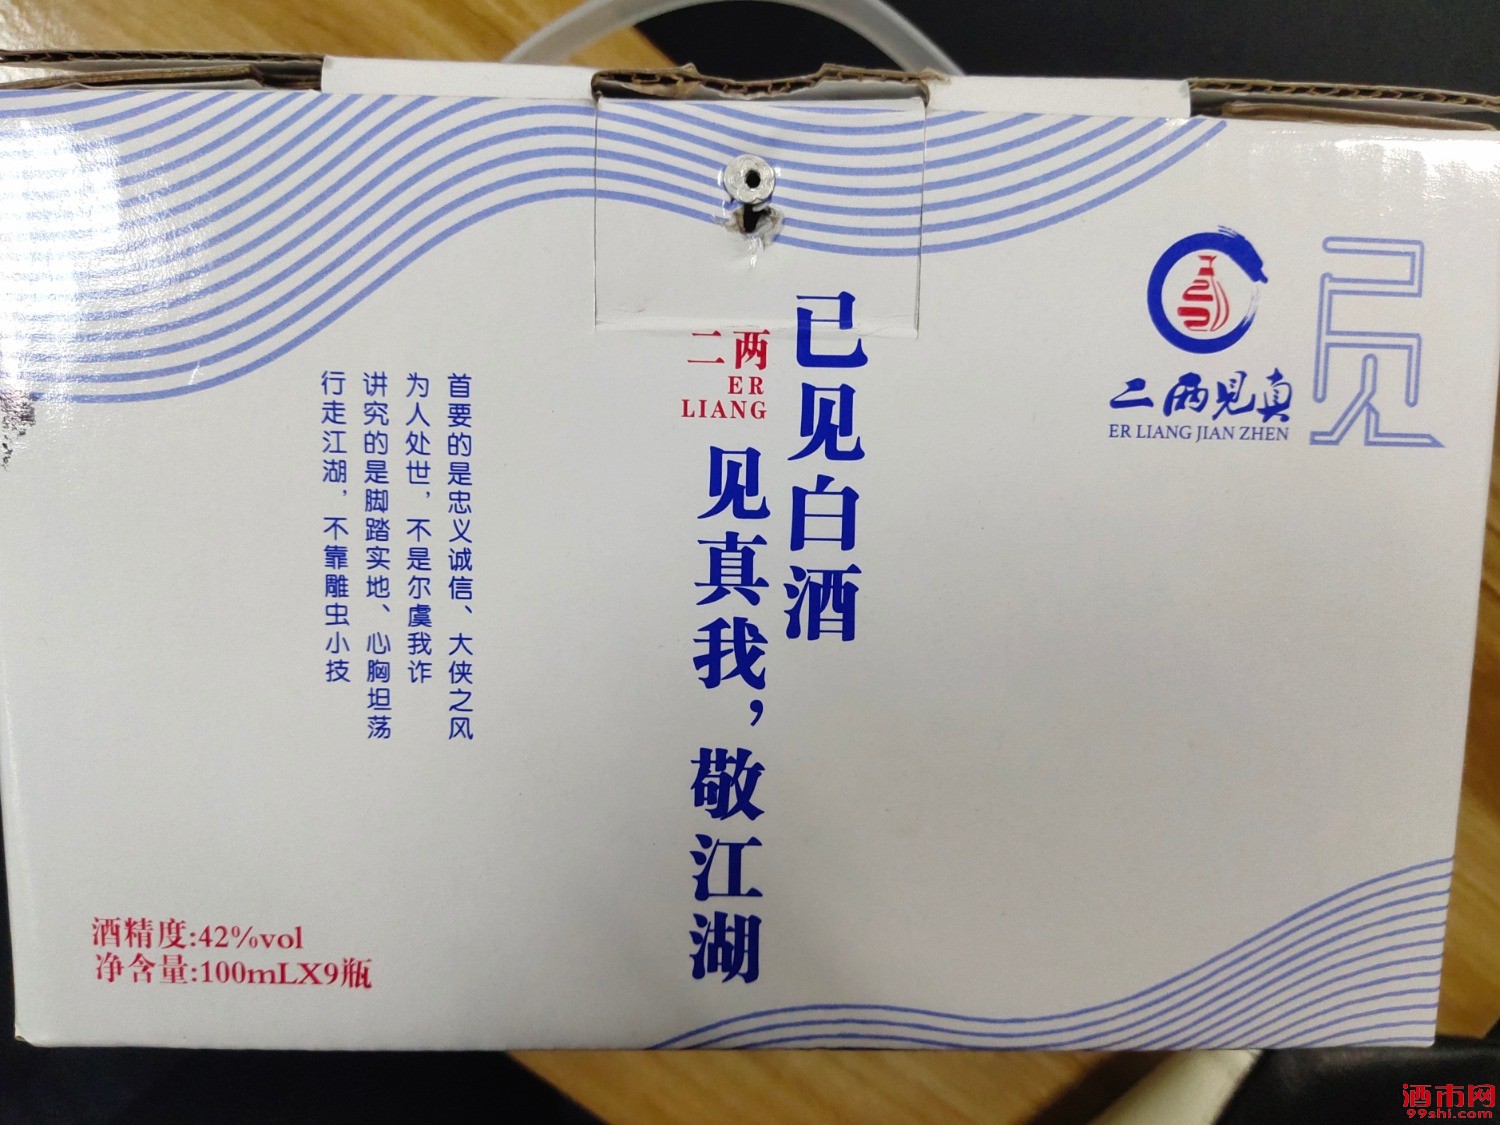 二两见真
ER LIANG JIAN ZHEN
已见
已见白酒
二两
ER
LIANG
见真我，敬江湖
首要的是忠义诚信、大侠之风
为人处世，不是尔虞我诈
讲究的是脚踏实地、心胸坦荡
行走江湖，不靠雕虫小技
酒精度:42%vol
净含量:100mLX9瓶
酒市网
99shi.com